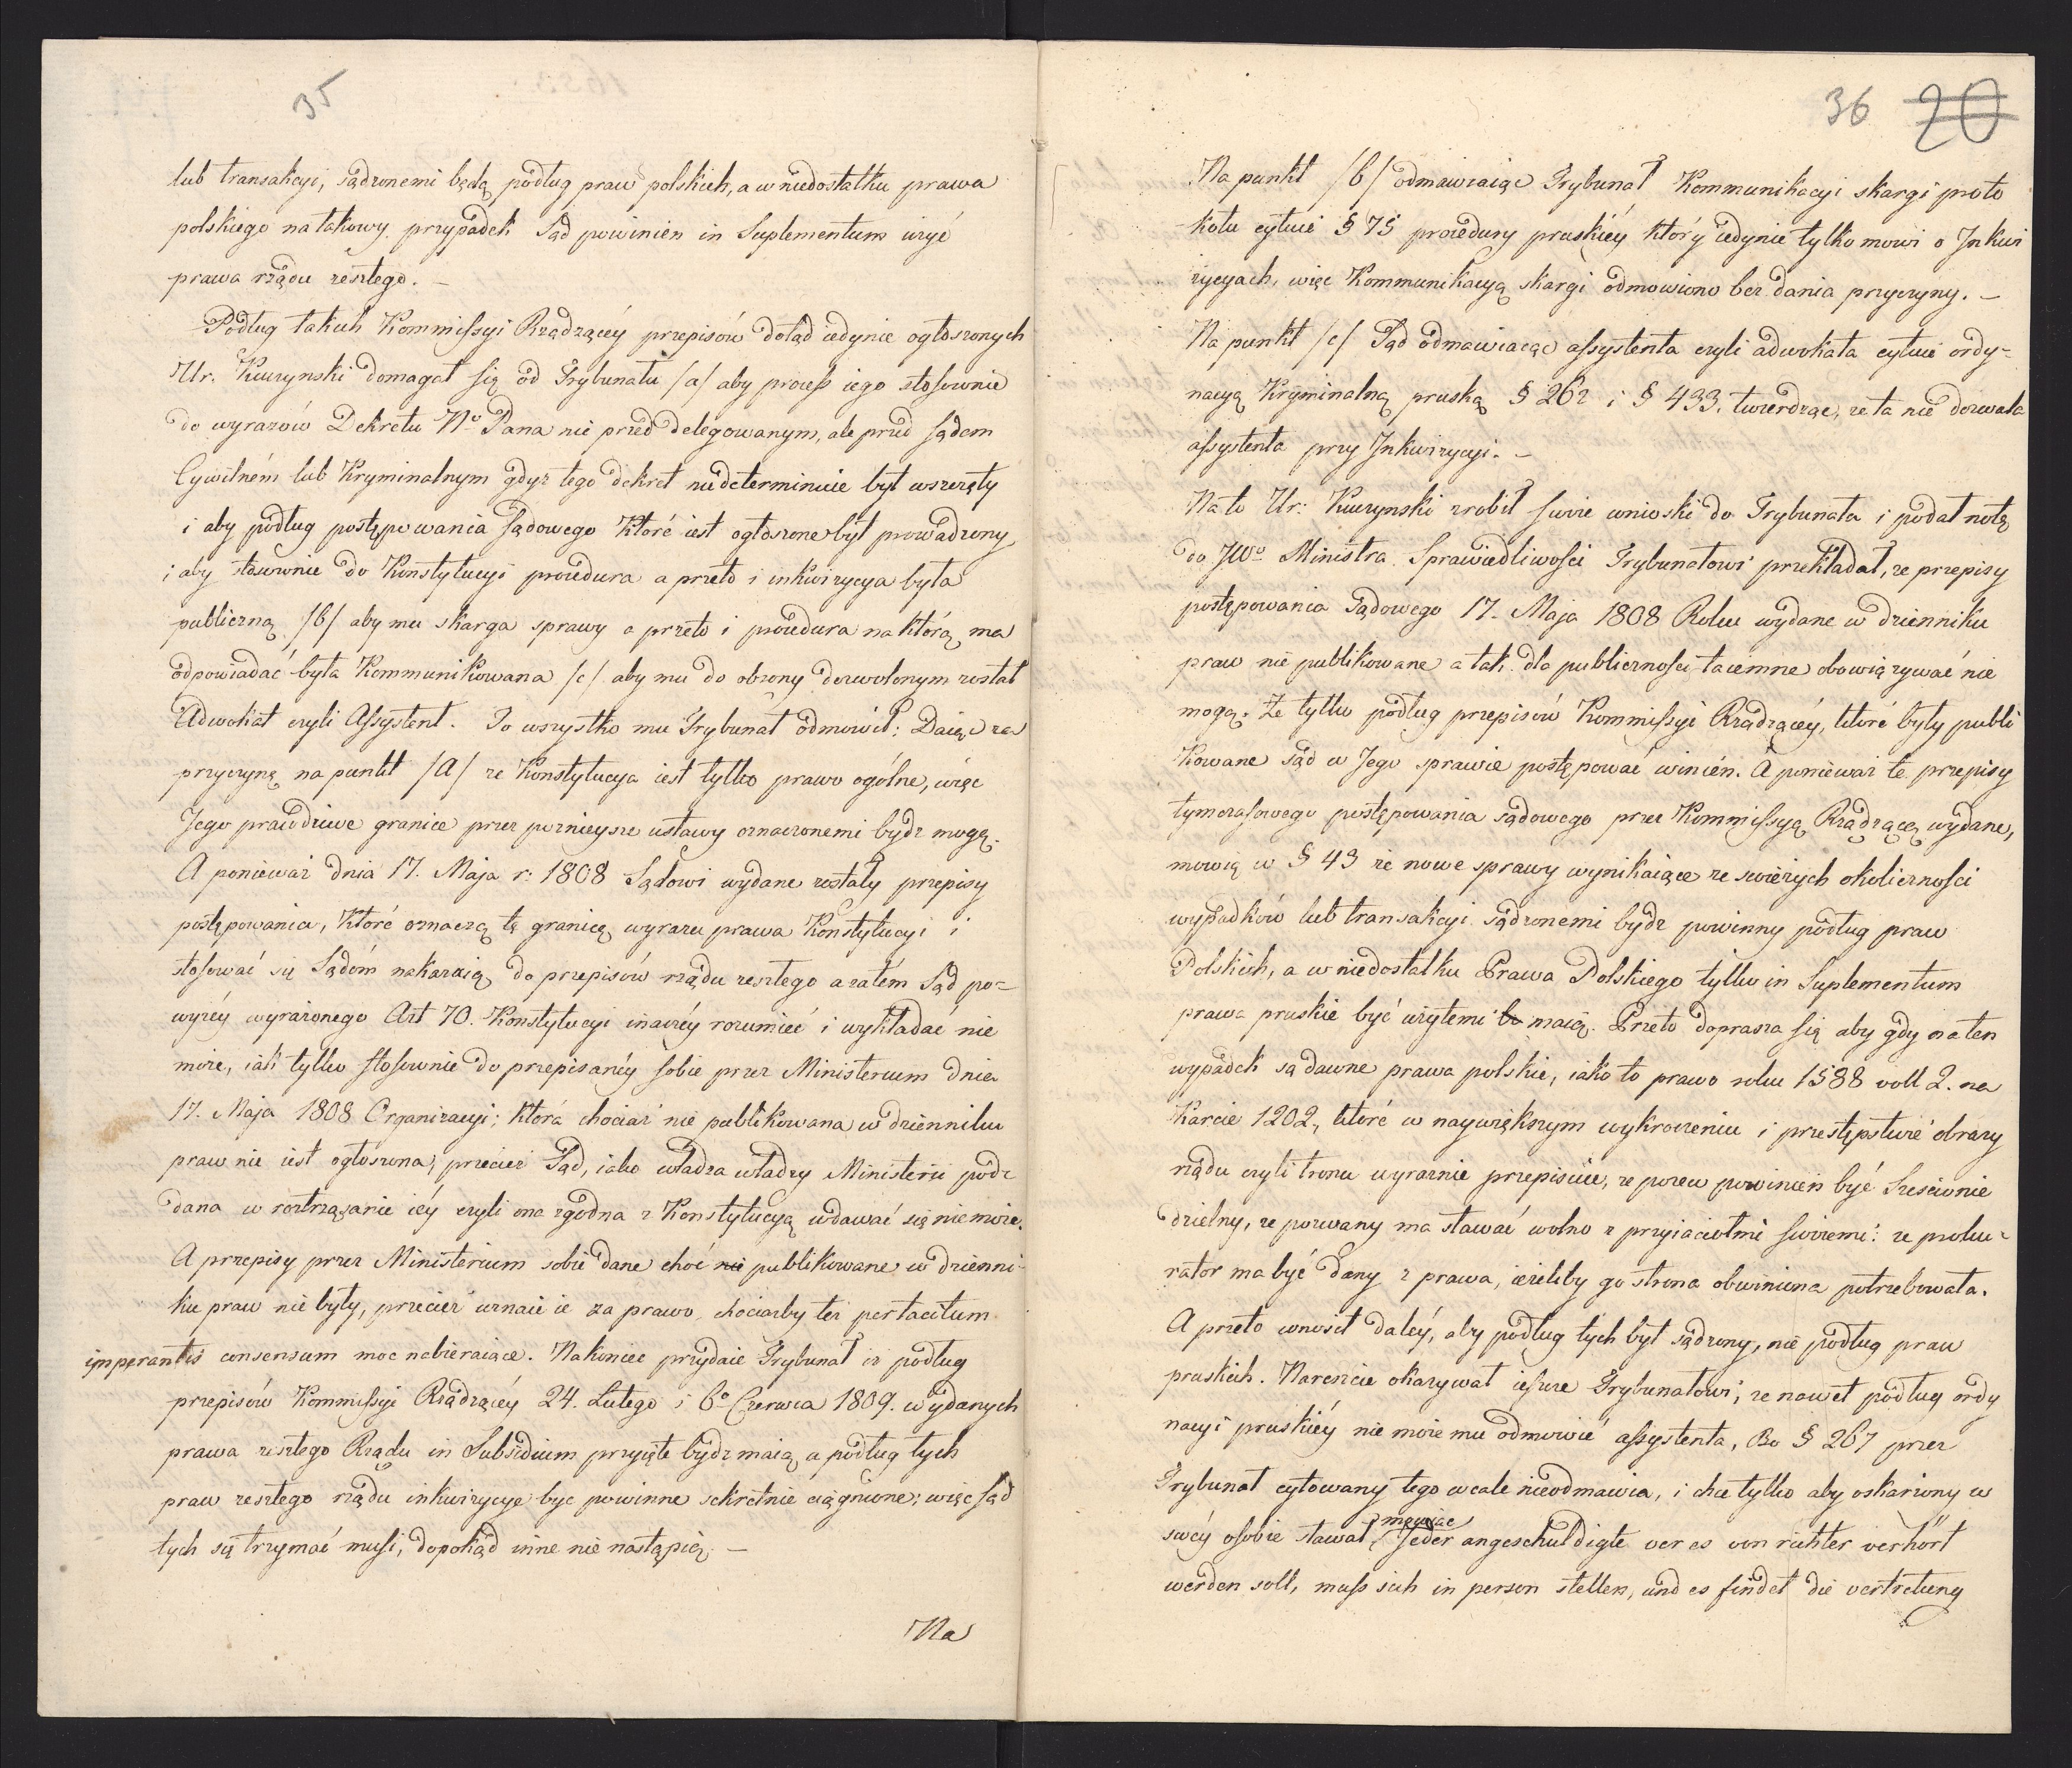 35
lub transakcyi, sądzonemi będą podług praw polskich, a w niedostatku prawa
polskiego na takowy przypadek Sąd powinien in Suplementum użyć
prawa rządu zeszłego. —
Podług takich Kommissyi Rządzącéy przepisów dotąd iedynie ogłoszonych
Ur. Kuczynski domagał się od Trybunału /a/ aby process iego stosownie
do wyrazów Dekretu No Pana nie przed delegowanym, ale przed sądem
Cywilném lub Kryminalnym gdyż tego dekret niedeterminuie był wszczęty
i aby podług postępowania sądowego które iest ogłoszone był prowadzony
i aby stosownie do Konstytucyi procedura a przeto i inkwizycya była
publiczną /b/ aby mu skarga sprawy a przeto i procedura na którą ma
odpowiadać była Kommunikowana /c/ aby mu do obrony dozwolonym został
Adwokat czyli Assystent. To wszystko mu Trybunał odmówił: Daiąc za
przyczynę na punkt /a/ że Konstytucya iest tylko prawo ogólne, więc
Jego prawdziwe granice przez pozniéysze ustawy oznaczonemi bydz mogą.
A ponieważ dnia 17. Maja r: 1808 Sądowi wydane zostały przepisy
postępowania, które oznaczą tę granicę wyrazu prawa Konstytucyi i
stosować się Sądóm nakazuią do przepisów rządu zeszłego a zatém Sąd po-
wyżéy wyrażonego Art 70. Konstytucyi inaczéy rozumieć i wykładać nie
może, iak tylko stosownie do przepisanéy sobie przez Ministerium dnia
17. Maja 1808 Organizacyi; która chociaż nie publikowana w dzienniku
praw nie iest ogłoszona, przecież Sąd, iako władza władzy Ministerii pod-
dana w roztrząsanie iéy czyli ona zgodna z Konstytucyą wdawać się nie może.
A przepisy przez Ministerium sobie dane choć nie publikowane w dzienni-
ku praw nie były, przecież uznaie ie za prawo, chociażby też per tacitum
imperantis consensum moc nabieraiące. Nakoniec przydaie Trybunał iż podług
przepisów Kommissyi Rządzącéy 24. Lutego i 6o Czerwca 1809. wydanych
prawa zeszłego Rządu in Subsidium przyięte bydz maią, a podług tych
praw zeszłego rządu inkwizycye byc powinne sekretnie ciągnione; więc Sąd
tych się trzymać musi, dopokąd inne nie nastąpią —
Na
36 20
Na punkt /b/ odmawiaiąc Trybunał Kommunikacyi skargi proto
kołu cytuie § 75 procedury pruskiéy który iedynie tylko mowi o Inkwi
zycyach, więc Kommunikacyą skargi odmowiono bez dania przyczyny. —
Na punkt /c/ Sąd odmawiaiąc assystenta czyli adwokata cytuie ordy-
nacyą Kryminalną pruską § 262 i § 433. twierdząc, że ta nie dozwala
assystenta przy Inkwizycyi. —
Na to Ur: Kuczynski zrobił swoie wnioski do Trybunału i podał notę
do JWo Ministra Sprawiedliwości Trybunałowi przekładał, że przepisy
postępowania Sądowego 17. Maja 1808 Roku wydane w dzienniku
praw nie publikowane a tak dla publiczności taiemne obowiązywać nie
mogą. Że tylko podług przepisów Kommissyi Rządzącéy, które były publi
kowane sąd w Jego sprawie postępować winién. A ponieważ te przepisy
tymczasowego postępowania sądowego przez Kommissyą Rządzącą wydane,
mowią w § 43 że nowe sprawy wynikaiące ze swieżych okoliczności
wypadków lub transakcyi sądzonemi bydz powinny podług praw
Polskich, a w niedostatku Prawa Polskiego tylko in Suplementum
prawa pruskie być użytemi maią. Przeto doprasza się aby gdy na ten
wypadek są dawne prawa polskie, iako to prawo roku 1588 voll 2. na
Karcie 1202, które w naywiększym wykroczeniu i przestępstwie obrazy
rządu czyli tronu wyraznie przepisuie, że pozew powinien być Sześcionie
dzielny, że pozwany ma stawać wolno z przyiaciołmi swoiemi: że proku-
rator ma być dany z prawa, ieżeliby go strona obwiniona potrzebowała.
A przeto wnosił daléy, aby podług tych był sądzony, nie podług praw
pruskich. Nareszcie okazywał ieszcze Trybunałowi, że nawet podług ordy
nacyi pruskiéy nie może mu odmowić assystenta, Bo § 267 przez
Trybunał cytowany tego wcale nieodmawia, i chce tylko aby oskarżony w
swéy osobie stawał mowiąc Jeder angeschuldigte der es von richter verhört
werden soll, muss sich in person stellen, und es findet die vertretung